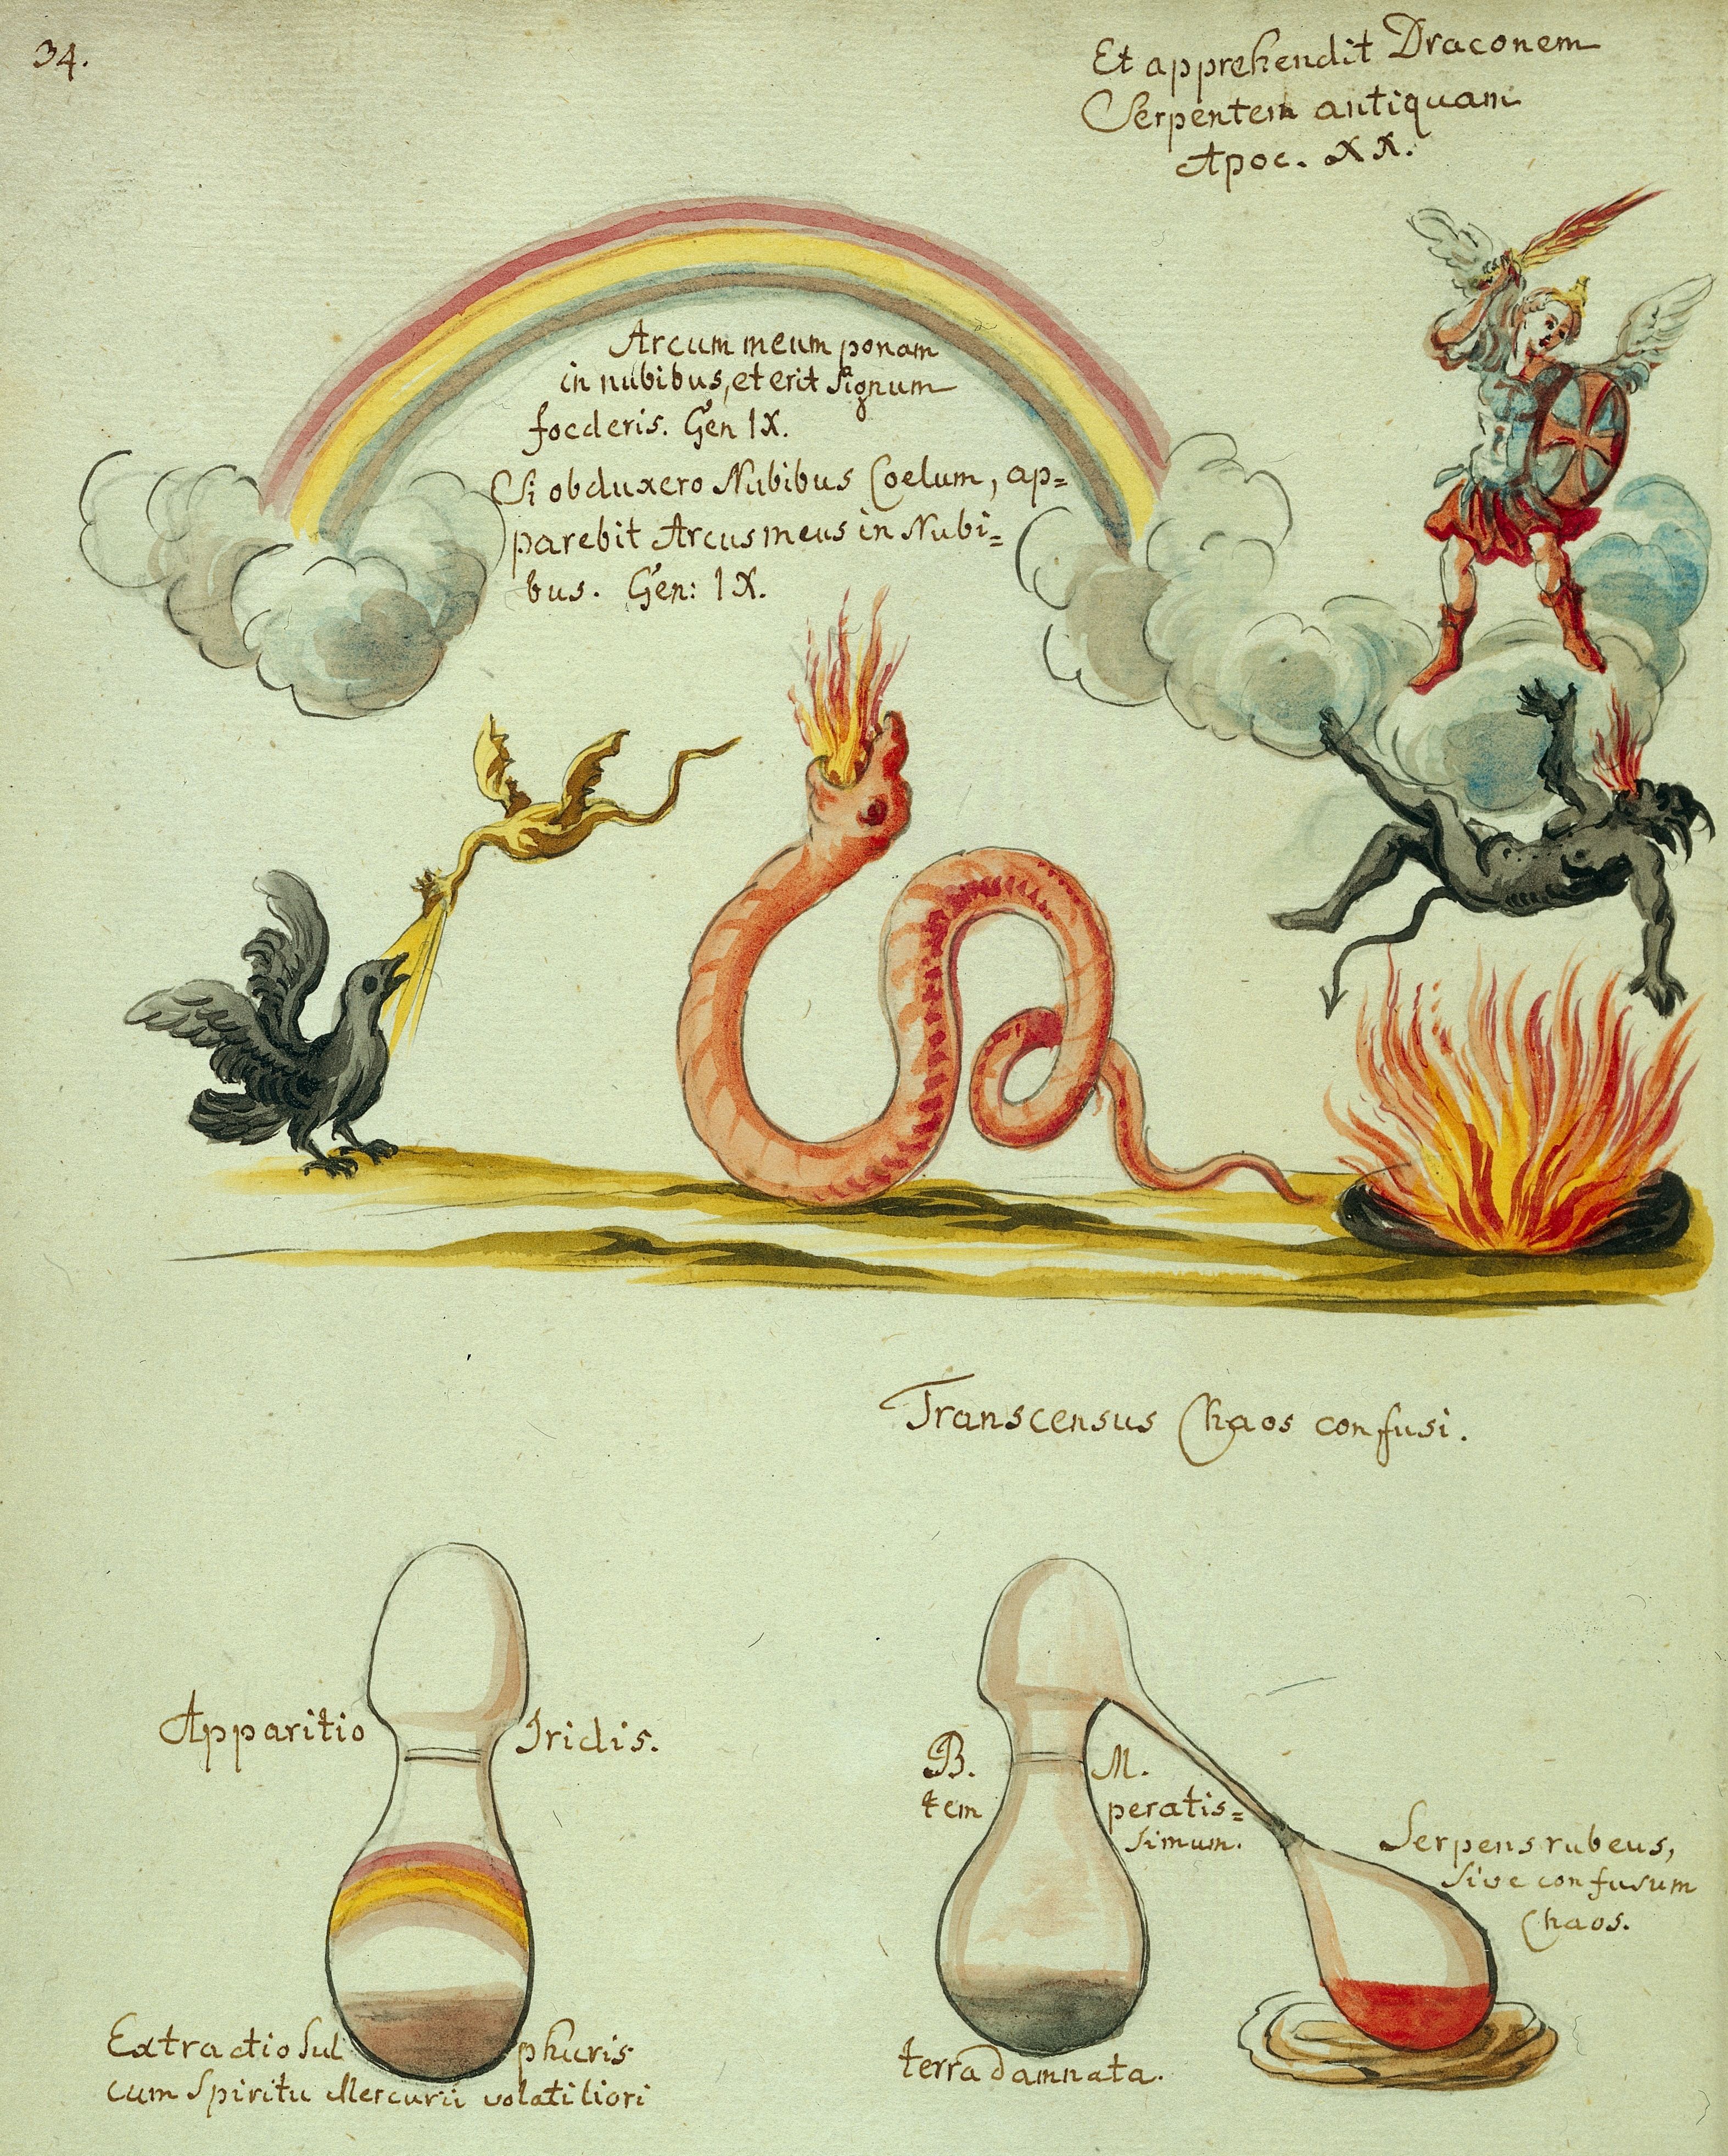 34.
Et apprehendit Draconem
Serpentem antiquam
Apoc. XX.
Arcum meum ponam
in nubibus, et erit signum
foederis. Gen IX.
Si obduxero Nubibus Coelum, ap=
parebit Arcus meus in Nubi=
bus. Gen: IX.
Transcensus Chaos confusi.
Apparitio Iridis.
B. M.
tem peratis=
simum.
Serpens rubeus,
sive confusum
Chaos.
Extractio Sul phuris
cum Spiritu Mercurii volatiliori
terra damnata.